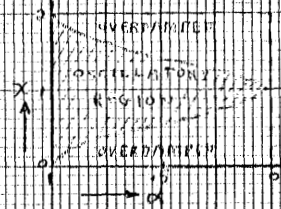 3
OVERDAMPED
OSCILLATORY
X
1
REGION
OVERDAMPED
0
1
α
0